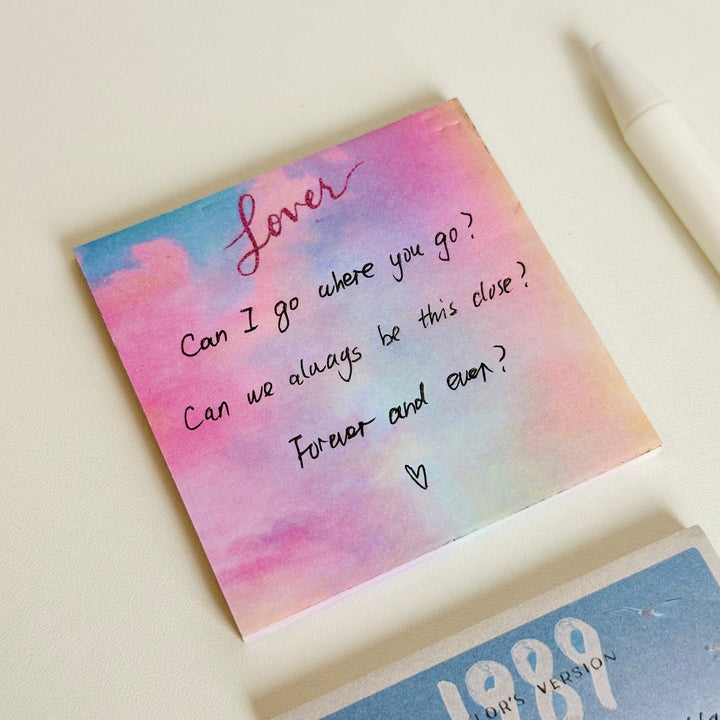 Lover
Can I go where you go?
Can we always be this close?
Forever and ever?
1989
LOR'S VERSION